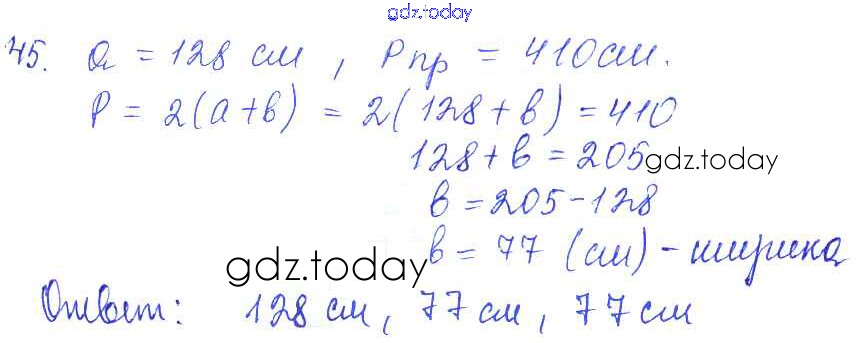 gdz.today
45. a = 128 см, Pпр = 410 см.
P = 2(a+b) = 2(128+b) = 410
128+b = 205 gdz.today
b = 205-128
b = 77 (см) - ширина
gdz.today
Ответ: 128 см, 77 см, 77 см